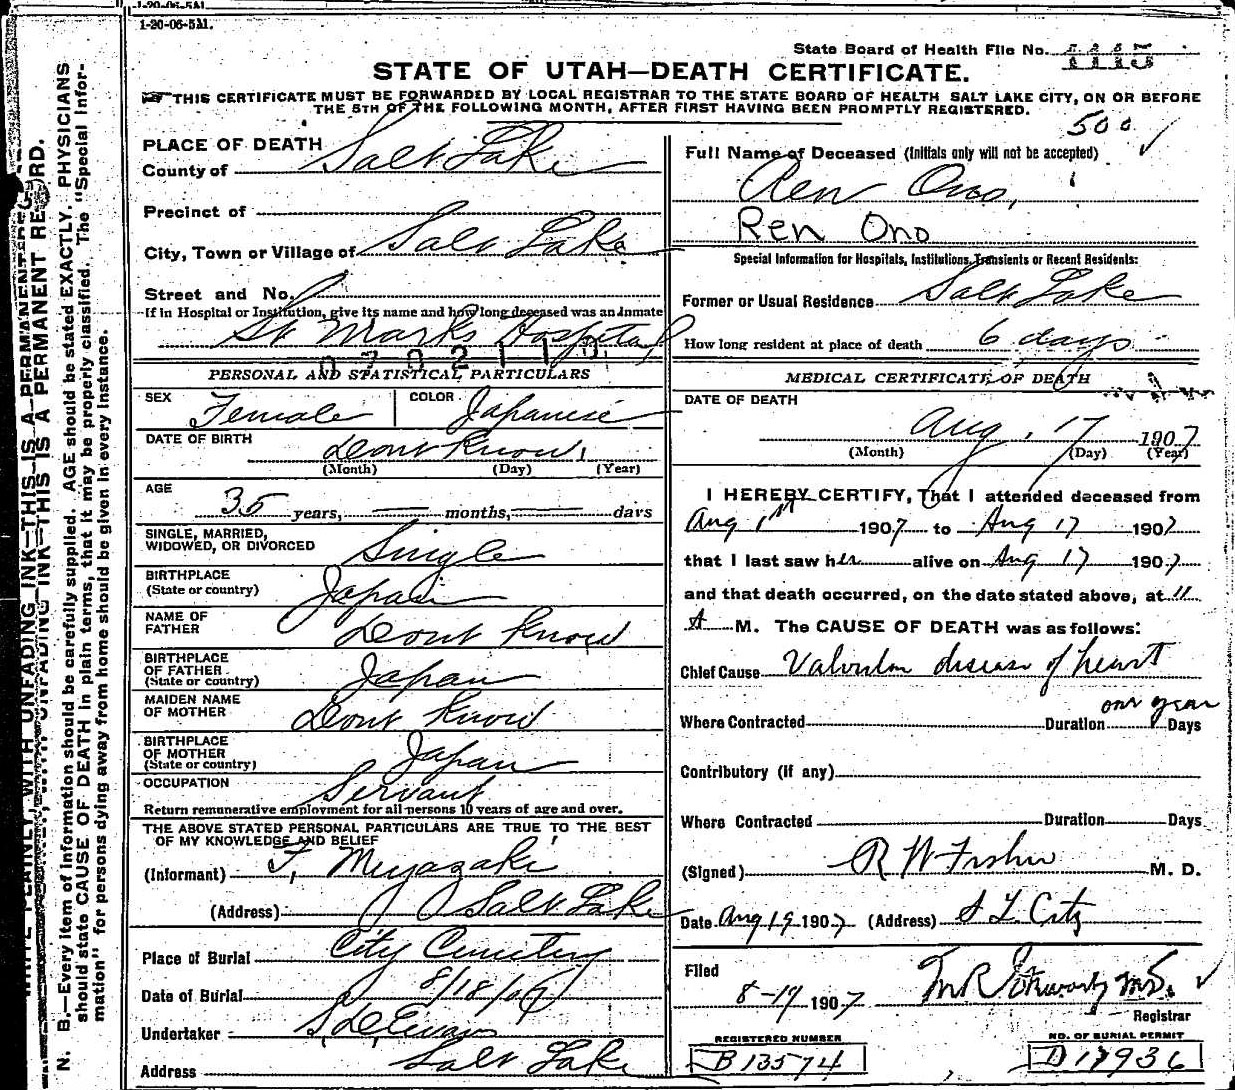 1-20-06-5M.
1-20-06-5M.
State Board of Health File No. 1115
STATE OF UTAH—DEATH CERTIFICATE.
THIS CERTIFICATE MUST BE FORWARDED BY LOCAL REGISTRAR TO THE STATE BOARD OF HEALTH SALT LAKE CITY, ON OR BEFORE
THE 5TH OF THE FOLLOWING MONTH, AFTER FIRST HAVING BEEN PROMPTLY REGISTERED.
N. B.—Every item of information should be carefully supplied. AGE should be stated EXACTLY. PHYSICIANS
should state CAUSE OF DEATH in plain terms, that it may be properly classified. The "Special Infor-
mation" for persons dying away from home should be given in every instance.
WRITE PLAINLY, WITH UNFADING INK—THIS IS A PERMANENT RECORD.
PLACE OF DEATH
County of Salt Lake
Precinct of
City, Town or Village of Salt Lake
Street and No.
If in Hospital or Institution, give its name and how long deceased was an inmate
St Marks Hospital
0702110
PERSONAL AND STATISTICAL PARTICULARS
SEX Female COLOR Japanese
DATE OF BIRTH Dont Know
(Month) (Day) (Year)
AGE 35 years, — months, — days
SINGLE, MARRIED,
WIDOWED, OR DIVORCED Single
BIRTHPLACE
(State or country) Japan
NAME OF
FATHER Dont Know
BIRTHPLACE
OF FATHER
(State or country) Japan
MAIDEN NAME
OF MOTHER Dont Know
BIRTHPLACE
OF MOTHER
(State or country) Japan
OCCUPATION Servant
Return remunerative employment for all persons 10 years of age and over.
THE ABOVE STATED PERSONAL PARTICULARS ARE TRUE TO THE BEST
OF MY KNOWLEDGE AND BELIEF
(Informant) T, Miyazaki
(Address) Salt Lake
Place of Burial City Cemetery
Date of Burial 8/18/07
Undertaker S D Evans
Address Salt Lake
500 ✓
Full Name of Deceased (Initials only will not be accepted)
Ren Ono,
Ren Ono
Special Information for Hospitals, Institutions, Transients or Recent Residents:
Former or Usual Residence Salt Lake
How long resident at place of death 6 days
MEDICAL CERTIFICATE OF DEATH
DATE OF DEATH
Aug. 17 1907
(Month) (Day) (Year)
I HEREBY CERTIFY, That I attended deceased from
Aug 1st 1907 to Aug 17 1907
that I last saw her alive on Aug 17 1907
and that death occurred, on the date stated above, at 11
A M. The CAUSE OF DEATH was as follows:
Chief Cause Valvular disease of heart
one year
Where Contracted Duration Days
Contributory (if any)
Where Contracted Duration Days
(Signed) R W Fisher M. D.
Date Aug 19 1907 (Address) S L City
Filed
8-19 1907 M.D. ✓
Registrar
REGISTERED NUMBER
B 13574
NO. OF BURIAL PERMIT
D 17936